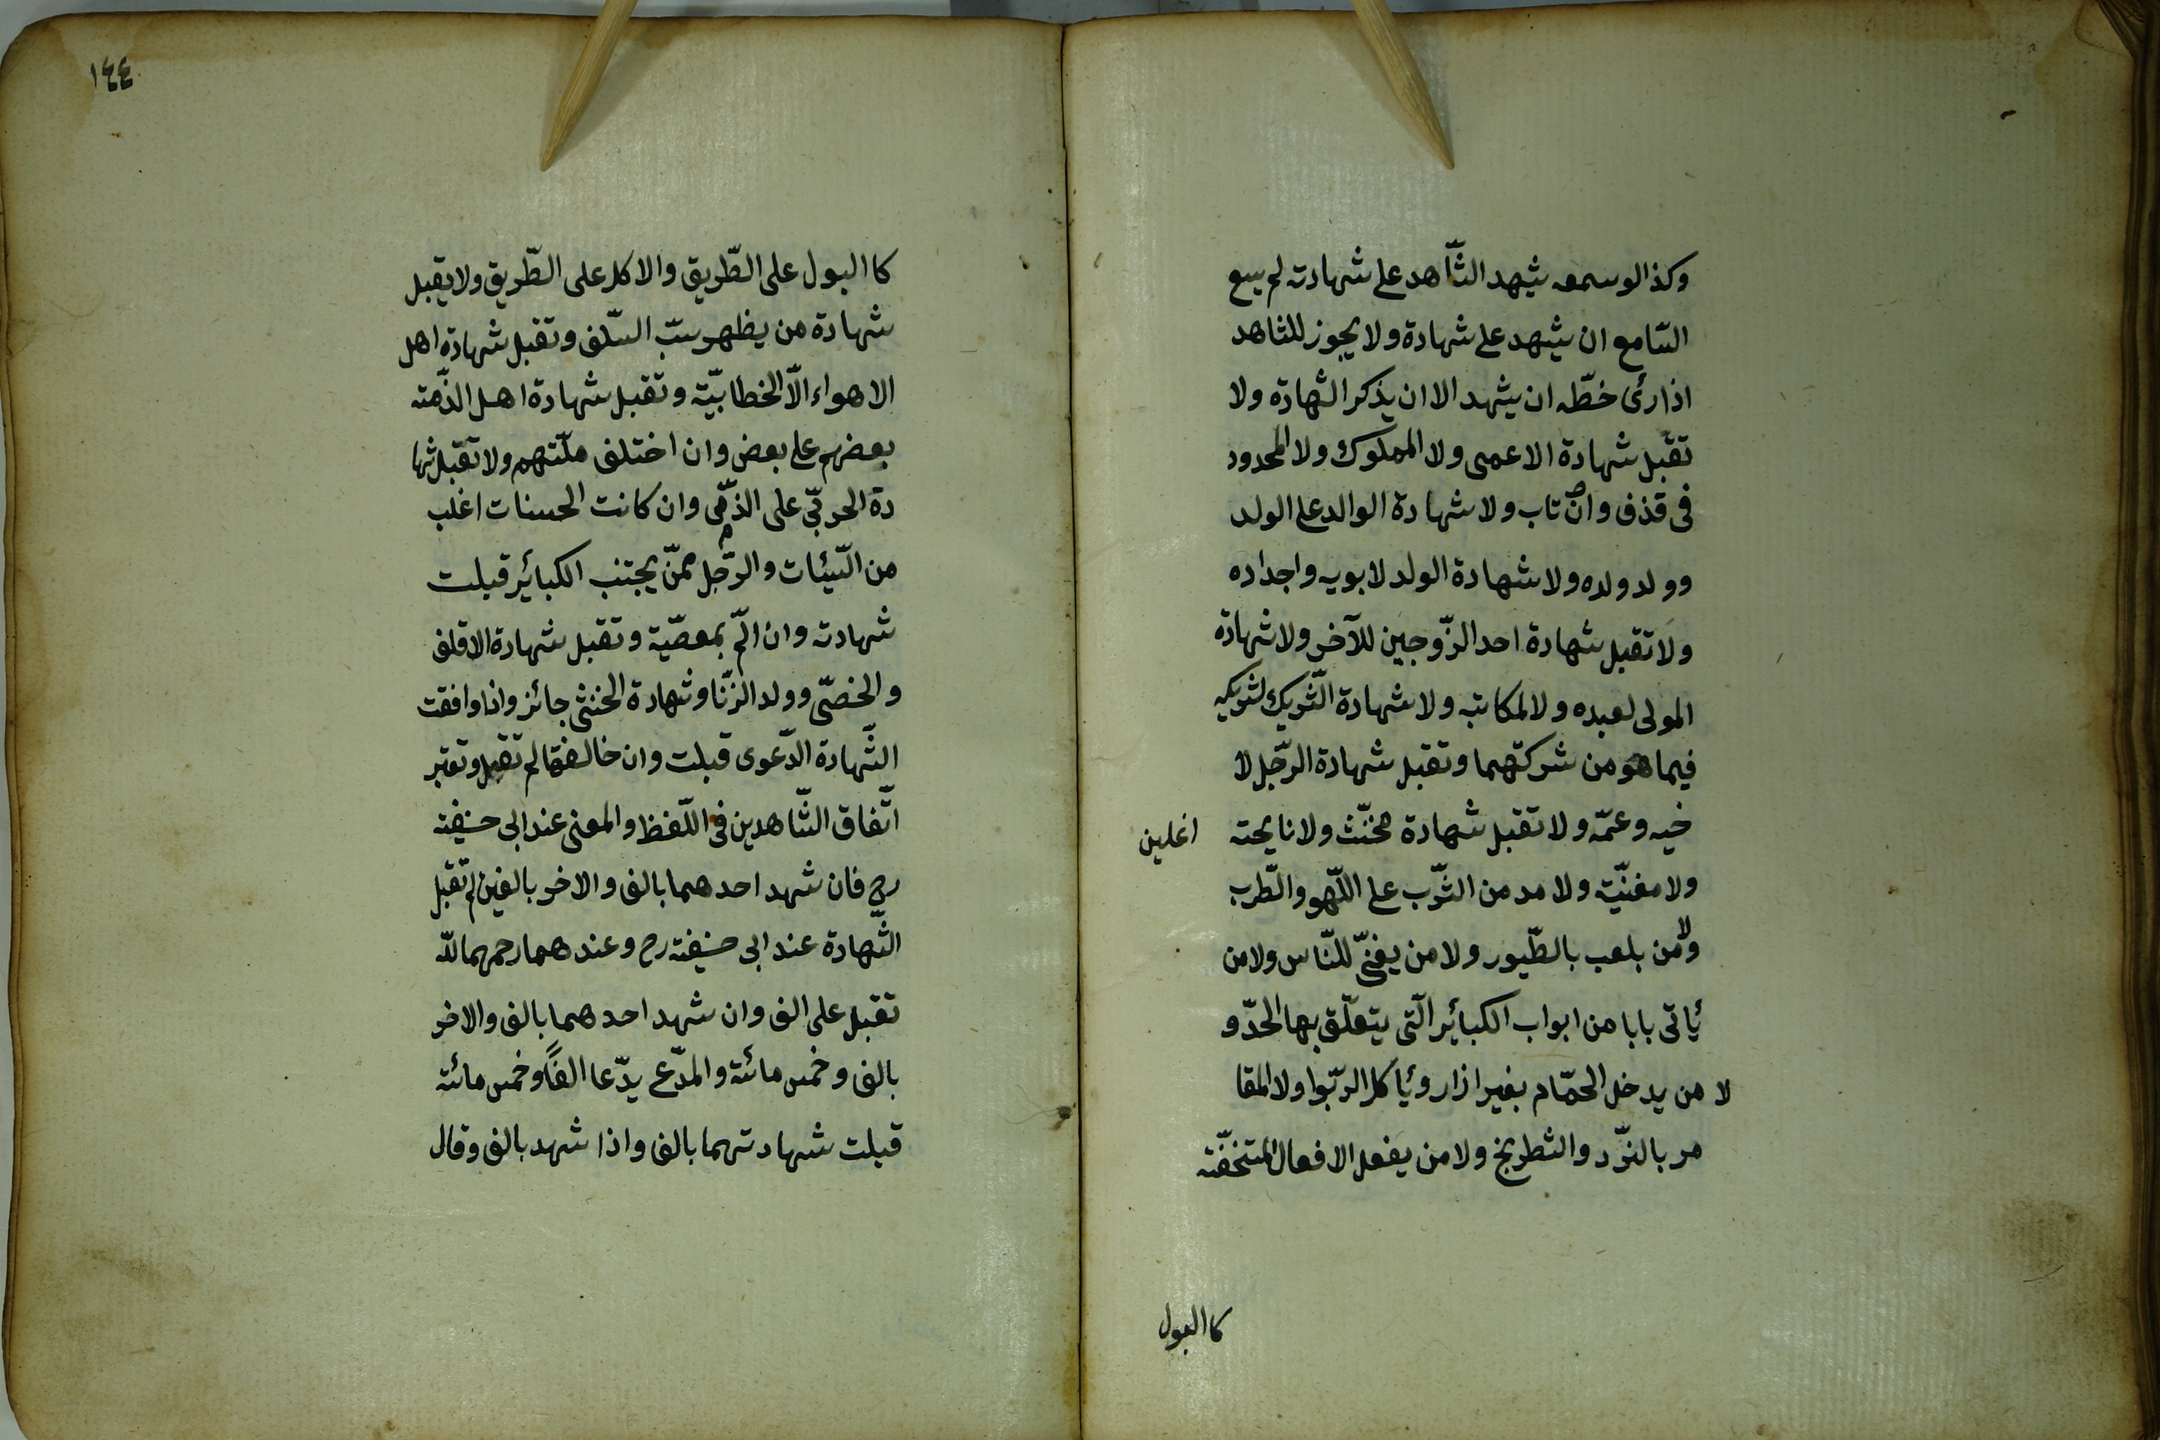 وكذا لو سمعه يشهد الشّاهد على شهادته لم يسع
السّامع ان يشهد على شهادة ولا يجوز للشاهد
اذا رئى خطّه ان يشهد الا ان يذكر الشهادة ولا
تقبل شهادة الاعمى ولا المملوك ولا المحدود
فى قذف وان تاب ولا شهادة الوالد على الولد
وولد ولده ولا شهادة الولد لابويه واجداده
ولا تقبل شهادة احد الزّوجين للآخر ولا شهادة
المولى لعبده ولا لمكاتبه ولا شهادة الشّريك لشريكه
فيما هو من شركتهما وتقبل شهادة الرّجل لا
خيه وعمّه ولا تقبل شهادة مخنّث ولا نايحته
ولا مغنيّة ولا مدمن الشّرب على اللّهو والطّرب
ولا من يلعب بالطّيور ولا من يغنّى للنّاس ولا من
يأتى بابا من ابواب الكبائر الّتى يتعلّق بها الحدّ و
لا من يدخل الحمّام بغير ازار ويأكل الرّبوا ولا المقا
مر بالنّرد والشطرنج ولا من يفعل الافعال المتخفّته
كا البول
١٤٤
كا البول على الطّريق والاكل على الطّريق ولا يقبل
شهادة من يظهر سبّ السّلف وتقبل شهادة اهل
الاهواء الّا الخطابيّة وتقبل شهادة اهل الذّمّته
بعضهم على بعض وان اختلف ملّتهم ولا تقبل شها
دة الحربّى على الذمّى وان كانت الحسنات اغلب
من السّيئات والرّجل ممنّ يجتنب الكبائر قبلت
شهادته وان المّ بمعصيّة وتقبل شهادة الاقلف
والخصّى وولد الزّنا وشهادة الخنثى جائز واذا وافقت
الشّهادة الدّعوى قبلت وان خالفتها لم تقبل وتعتبر
اتّفاق الشّاهدين فى اللّفظ والمعنى عند ابى حنيفته
رح فان شهد احدهما بالف والاخر بالفين لم تقبل
الشّهادة عند ابى حنيفته رح وعندهما رحمهما للّه
تقبل على الف وان شهد احدهما بالف والاخر
بالف وخمس مائة والمدّعى يدّعا الفًا وخمس مائة
قبلت شهادتهما بالف واذا شهد بالف وقال